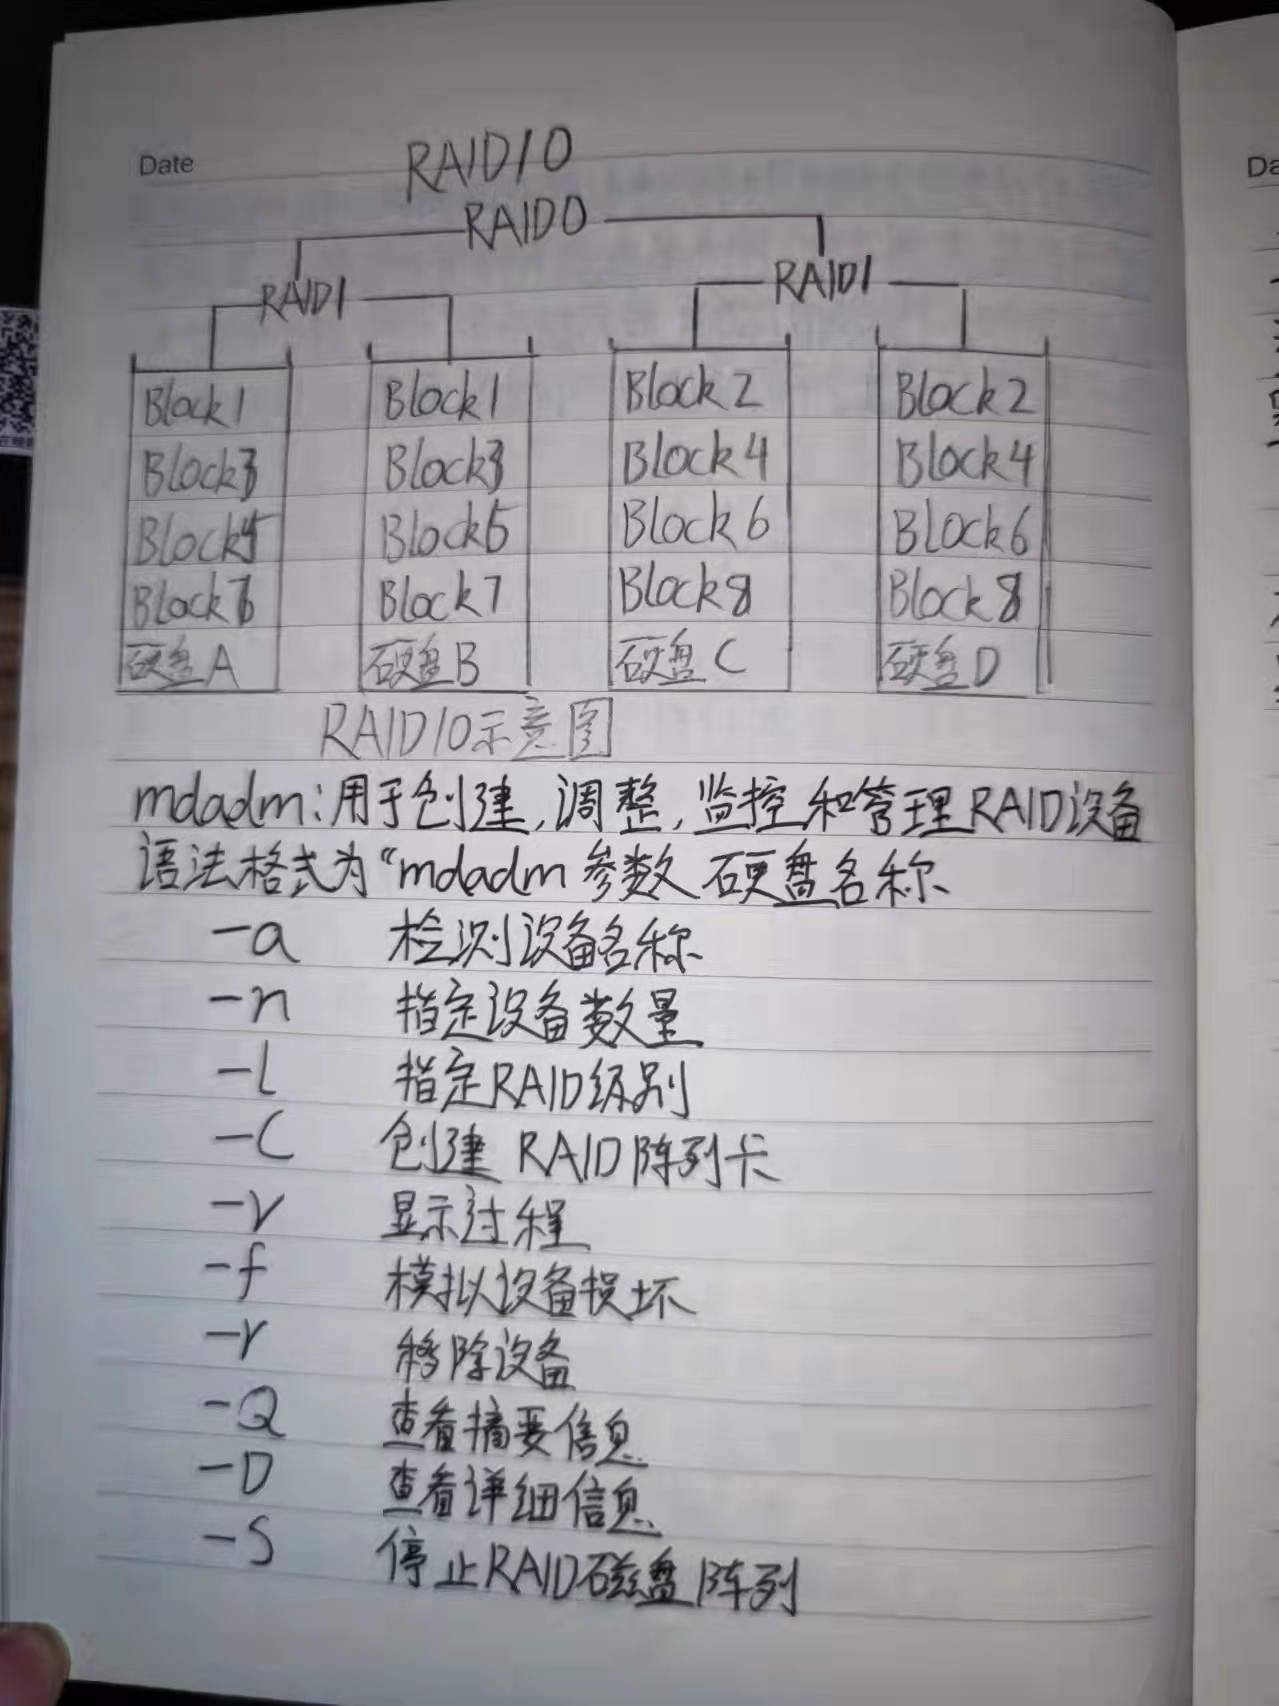 Date
RAID10
RAID0
RAID1 RAID1
Block1 Block1 Block2 Block2
Block3 Block3 Block4 Block4
Block5 Block5 Block6 Block6
Block7 Block8 Block8
硬盘A 硬盘B 硬盘C 硬盘D
RAID10示意图
mdadm:用于创建,调整,监控和管理RAID设备
语法格式为“mdadm 参数 硬盘名称
-a 检测设备名称
-n 指定设备数量
-l 指定RAID级别
-C 创建 RAID阵列卡
-v 显示过程
-f 模拟设备损坏
-r 移除设备
-Q 查看摘要信息
-D 查看详细信息
-S 停止RAID磁盘阵列